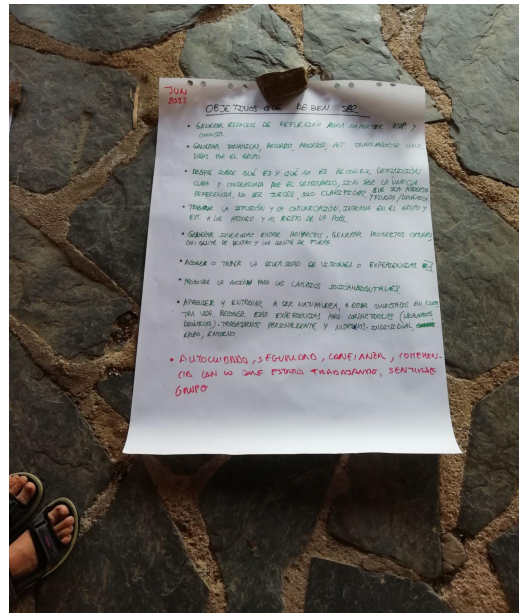 JUN
2022
OBJETIVOS QUE DEBEN SER
• GENERAR ESPACIOS DE REFLEXIÓN PARA Y
CONOCER
• GENERAR DINÁMICAS, PROCESOS, ACT.
POR EL GRUPO
• DEBATE SOBRE QUÉ ES Y QUÉ NO ES DEFINICIÓN
CLARA Y CONSENSUADA POR EL SEMINARIO, SIN SER LA ÚNICA
REFERENCIA, NO SER JUECES, SINO CLARIFICAR, QUE SEA ABIERTA
Y FLUIDA / DINÁMICA
• TRABAJAR LA DIFUSIÓN Y LA COMUNICACIÓN, INTERNA EN EL GRUPO Y
EXT. A LOS Y AL RESTO DE LA POBL
• GENERAR SINERGIAS ENTRE PROYECTOS, GENERAR PROYECTOS
CON GENTE DE DENTRO Y CON GENTE DE FUERA
• ACOGER O TRAER LA DIVERSIDAD DE VISIONES O EXPERIENCIAS
• PROMOVER LA ACCIÓN PARA LOS CAMBIOS SOCIOAMBIENTALES
• APRENDER Y ENTRENAR A SER NATURALEZA, A ESTAR CONECTADOS EN NUES
TRA VIDA. RECOGER ESAS EXPERIENCIAS PARA COMPARTIRLAS
TRABAJARNOS PERSONALMENTE Y INDIVIDUAL
GRUPO, ENTORNO
• AUTOCUIDADO, SEGURIDAD, CONFIANZA, COHEREN-
CIA CON LO QUE ESTAMOS TRABAJANDO, SENTIRSE
GRUPO